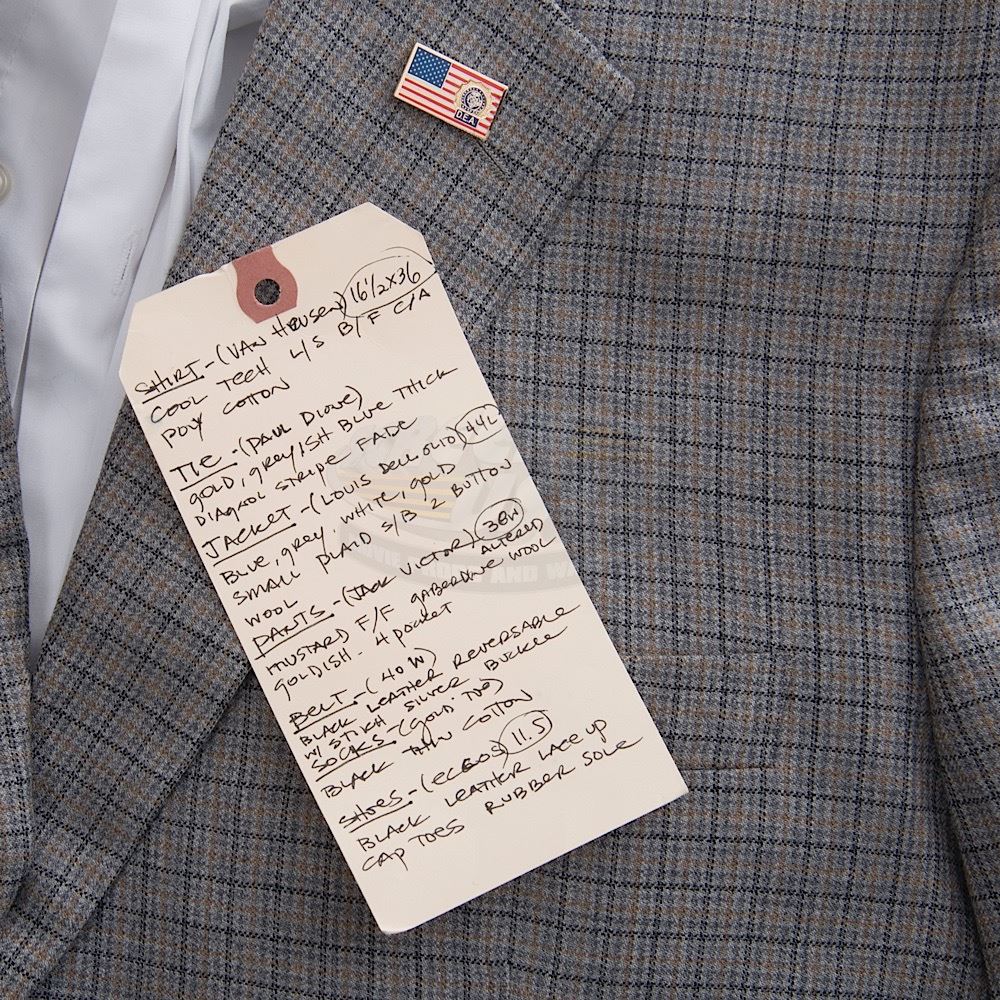 DEA
SHIRT - (VAN HEUSEN) 16 1/2 X 36
COOL TECH L/S B/F C/A
POY COTTON
TIE - (PAUL DIONE)
GOLD, GREYISH BLUE THICK
DIAGNOL STRIPE FADE
JACKET - (LOUIS DELL OLIO) 44L
BLUE, GREY, WHITE, GOLD
SMALL PLAID S/B 2 BUTTON
WOOL
PANTS - (JACK VICTOR) 38W
ALTERED
MUSTARD F/F GABERDINE WOOL
GOLDISH - 4 POCKET
BELT - (40W)
BLACK LEATHER REVERSABLE
W/ STICH SILVER BUCKLE
SOCKS - (GOLD TOE)
BLACK THIN COTTON
SHOES - 11.5
BLACK LEATHER LACE UP
CAP TOES RUBBER SOLE